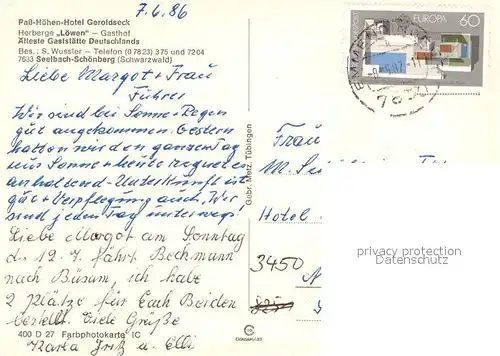 7.6.86
Paß-Höhen-Hotel Geroldseck
Herberge „Löwen" – Gasthof
Älteste Gaststätte Deutschlands
Bes.: S. Wussler – Telefon (07823) 375 und 7204
7633 Seelbach-Schönberg (Schwarzwald)
Liebe Margot + Frau
Führer
Wir sind bei Sonne + Regen
gut angekommen. Gestern
hatten wir den ganzen Tag
nur Sonne + heute regnet es
anhaltend. Unterkunft ist
gut + Verpflegung auch. Wir
sind jeden Tag unterwegs.
Liebe Margot am Sonntag
d. 12.7. fährt Beckmann
nach Büsum, ich habe
2 Plätze für Euch Beiden
bestellt. Viele Grüße
400 D 27 Farbphotokarte IC
Karla Fritz u. Elli
Gebr. Metz, Tübingen
EUROPA 60
Frau
M.
Hotel
3450
privacy protection
Datenschutz